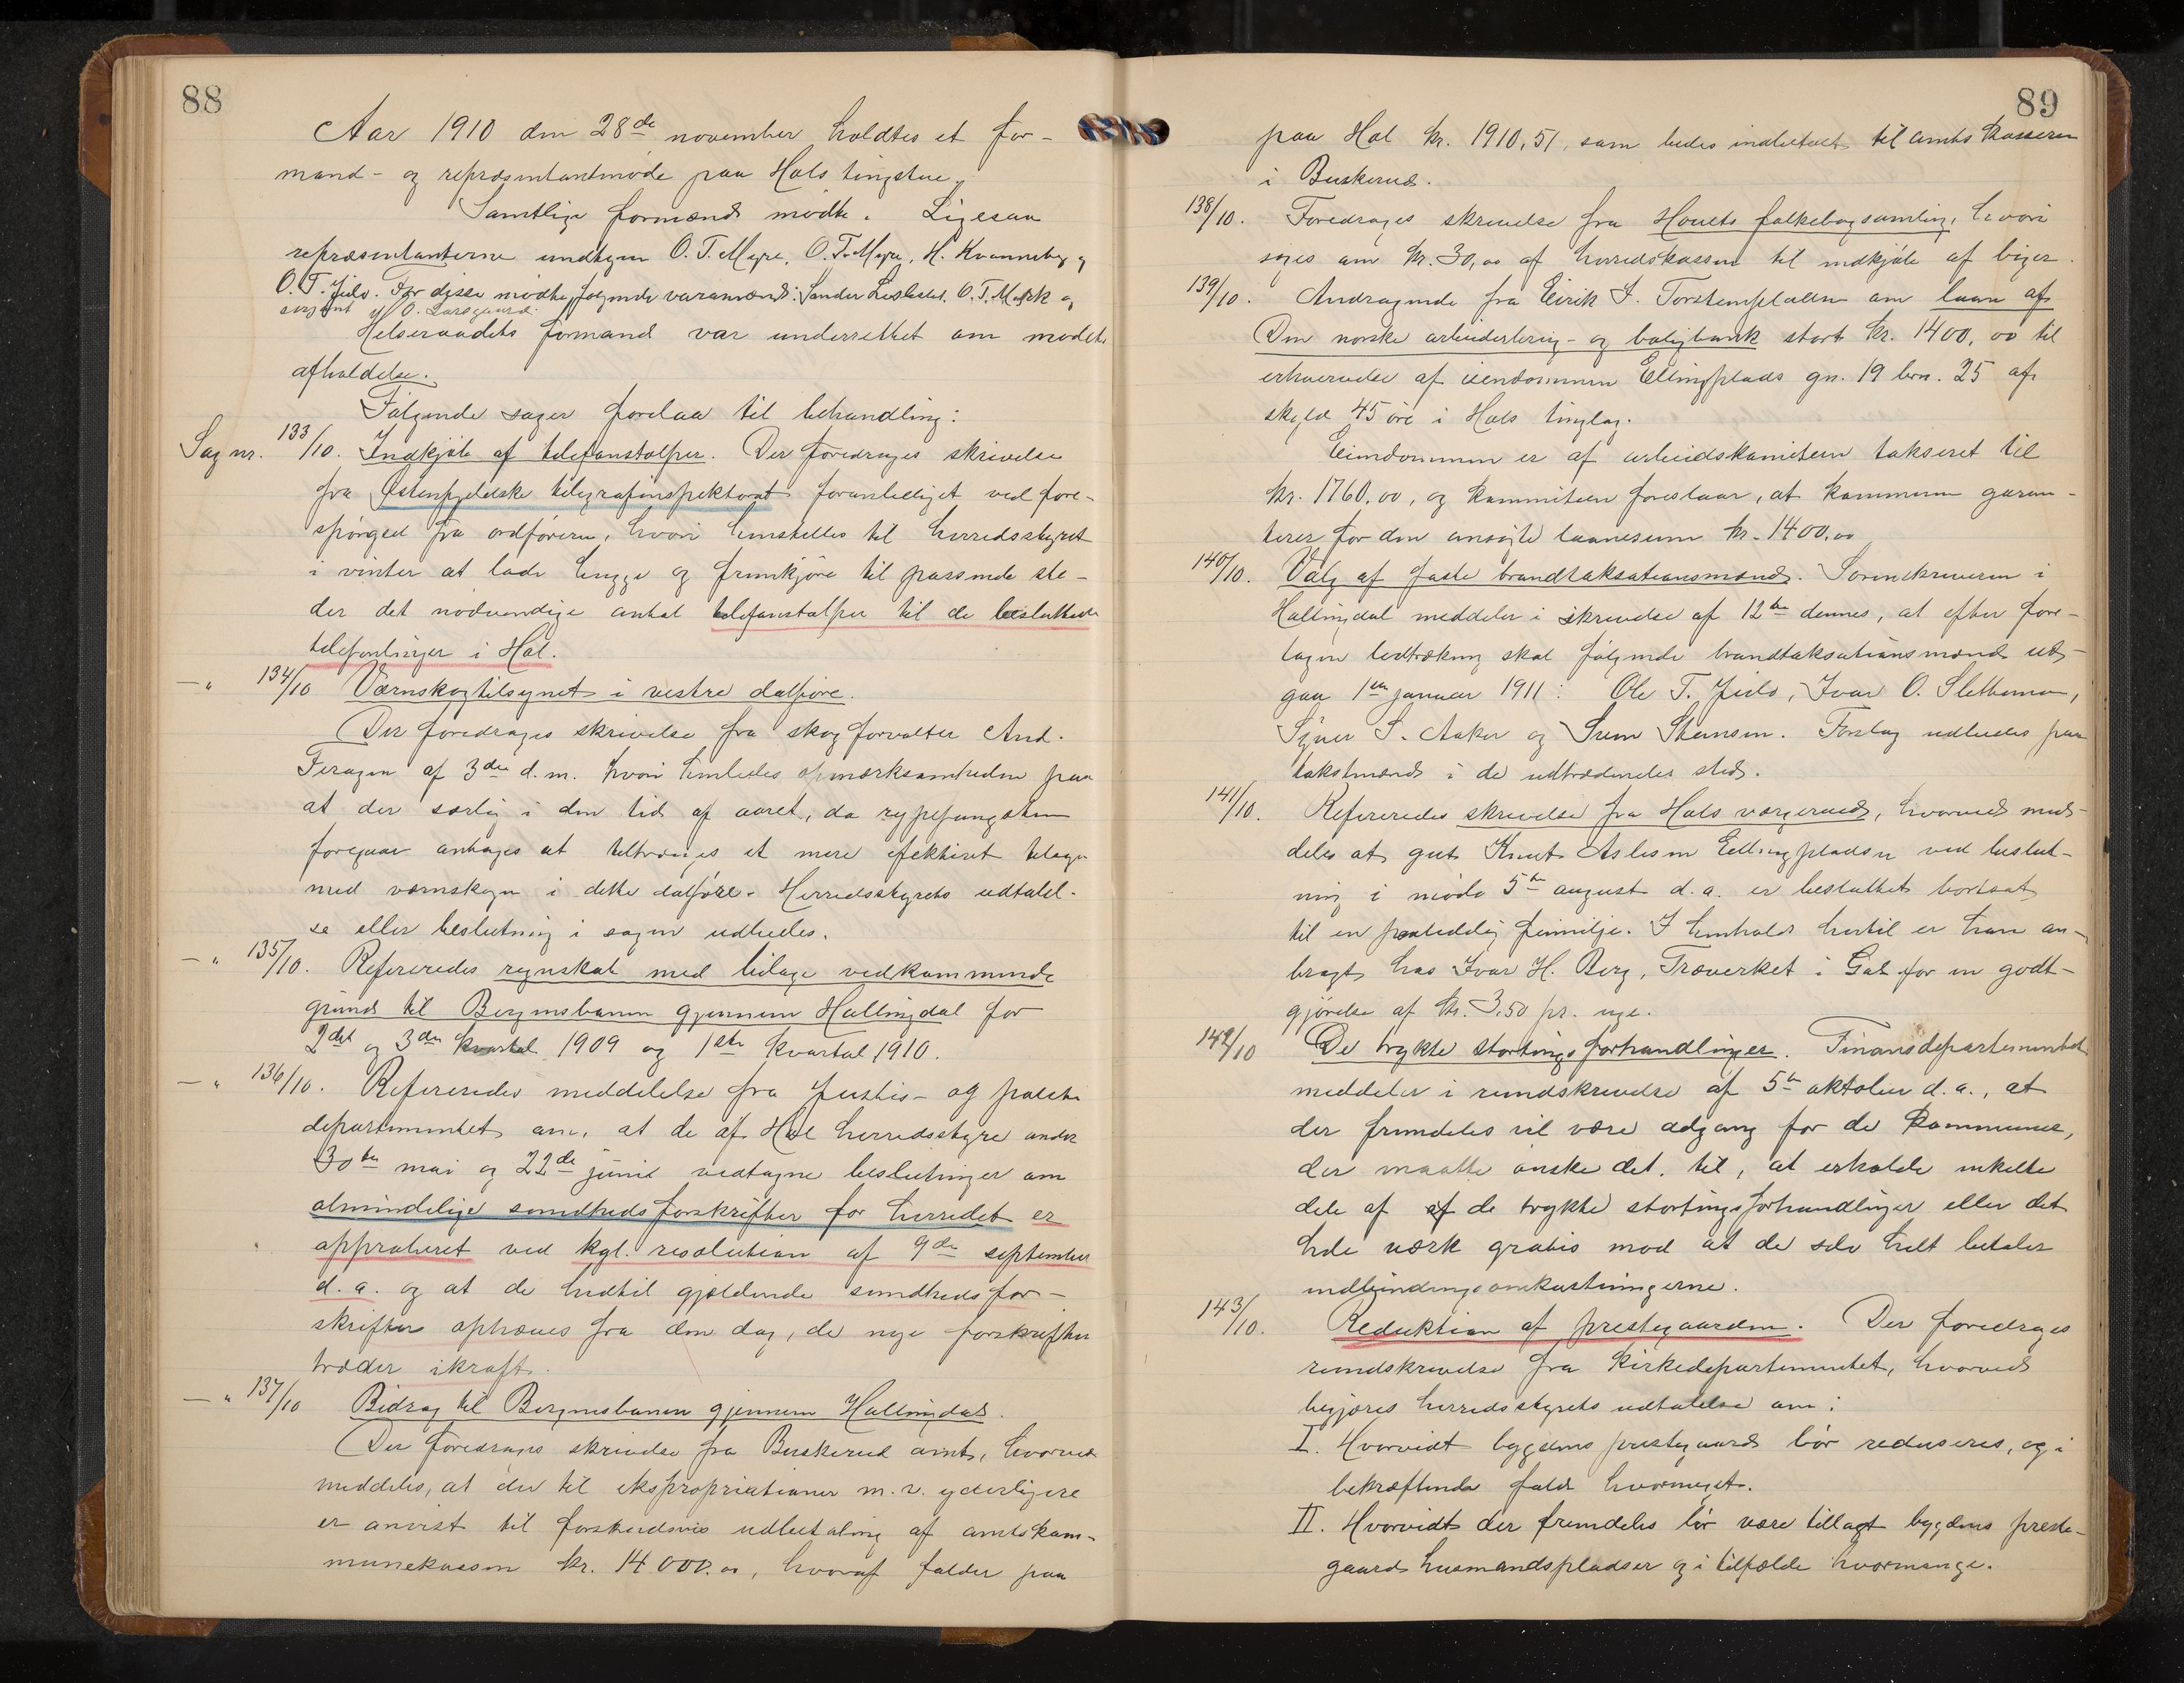 88
Aar 1910 den 28de november holdtes et for-
mand- og repræsentantmøde paa Hols tingstue.
Samtlige formænd mødte. Ligesaa
repræsentanterne undtagen O. T. Myre, O. T. Myre, H. Kvanneberg og
O. T. Jielo. For disse mødte følgende varamænd: Sander Leslielek. O. T.
sergent O. Larsgaard.
Helseraadets formand var underrettet om mødets
afholdelse.
Følgende sager forelaa til behandling:
Sag nr. 133/10. Indkjøb af telefonstolper. Der foredrages skrivelse
fra Østenfjeldske telegrafinspektorat foranlediget ved fore-
spørgsel fra ordføreren, hvori henstilles til herredsstyret
i vinter at lade hugge og fremkjøre til passende ste-
der det nødvendige antal telefonstolper til de besluttede
telefonlinjer i Hol.
— " 134/10 Værnskogtilsynet i vestre dalføre.
Der foredrages skrivelse fra skogforvalter And.
Feragen af 3die d.m. hvori henledes opmærksomheden paa
at der særlig i den tid af aaret, da rypefangsten
foregaar antages at tiltrænges et mere efektivt tilsyn
med værnskogen i dette dalføre. Herredsstyrets udtalel-
se eller beslutning i sagen udbedes.
— " 135/10. Refereredes regnskab med bilage vedkommende
grund til Bergensbanen gjennem Hallingdal for
2det og 3die kvartal 1909 og 1ste kvartal 1910.
— " 136/10. Refereredes meddelelse fra justis- og politi
departementet om, at de af Hol herredsstyre under
30te mai og 22de juni vedtagne beslutninger om
almindelige sundhedsforskrifter for herredet er
approberet ved kgl. resolution af 9de september
d.a. og at de hidtil gjældende sundhedsfor-
skrifter ophæves fra den dag, de nye forskrifter
træder ikraft.
— " 137/10 Bidrag til Bergensbanen gjennem Hallingdal.
Der foredrages skrivelse fra Buskerud amt, hvorved
meddeles, at der til ekspropriationer m.v. yderligere
er anvist til forskudsvis udbetaling af amtskom-
munekassen kr. 14 000.00, hvoraf falder paa
89
paa Hol kr. 1910,51, som bedes indbetalt til amtskassereren
i Buskerud.
138/10. Foredrages skrivelse fra Hovets folkebogsamling, hvori
søges om kr. 30,00 af herredskassen til indkjøb af bøger.
139/10. Andragende fra Eirik I. Torsteinpladsen om laan af
Den norske arbeiderbrug- og boligbank stort kr. 1400,00 til
erhvervelse af eiendommen Ellingplads gn. 19 brn. 25 af
skyld 45 øre i Hols tinglag.
Eiendommen er af arbeidskomiteen takseret til
kr. 1760,00, og kommiteen foreslaar, at kommunen garan-
terer for den ansøgte laanesum kr. 1400.00
140/10. Valg af faste brandtaksationsmænd. Sorenskriveren i
Hallingdal meddeler i skrivelse af 12te dennes, at efter fore-
tagen lodtrækning skal følgende brandtaksationsmænd ud-
gaa 1ste januar 1911: Ole T. Jielo, Ivar O. Slettemoen,
S. Aaker og Svein Steinsen. Forslag udbedes paa
takstmænd i de udtrædendes sted.
141/10. Refereredes skrivelse fra Hols vergeraad, hvorved med-
deles at gut Knut Aslesen Ellingpladsen ved beslut-
ning i møde 5te august d.a. er besluttet bortsat
til en paalidelig familje. I henhold hertil er han an-
bragt hos Ivar H. Berg, Træverket i Gol for en godt-
gjørelse af kr. 3.50 pr. uge.
142/10 De trykte stortingsforhandlinger. Finansdepartementet
meddeler i rundskrivelse af 5te oktober d.a., at
der fremdeles vil være adgang for de kommuner,
der maatte ønske det, til, at erholde enkelte
dele af af de trykte stortingsforhandlinger eller det
hele værk gratis mod at de selv helt betaler
indbindingsomkostningerne.
143/10. Reduktion af prestegaarden. Der foredrages
rundskrivelse fra kirkedepartementet, hvorved
begjæres herredsstyrets udtalelse om:
I. Hvorvidt bygdens prestegaard bør reduseres, og i
bekræftende fald hvormeget.
II. Hvorvidt der fremdeles bør være tillagt bygdens preste-
gaard husmandspladser og i tilfælde hvormange.